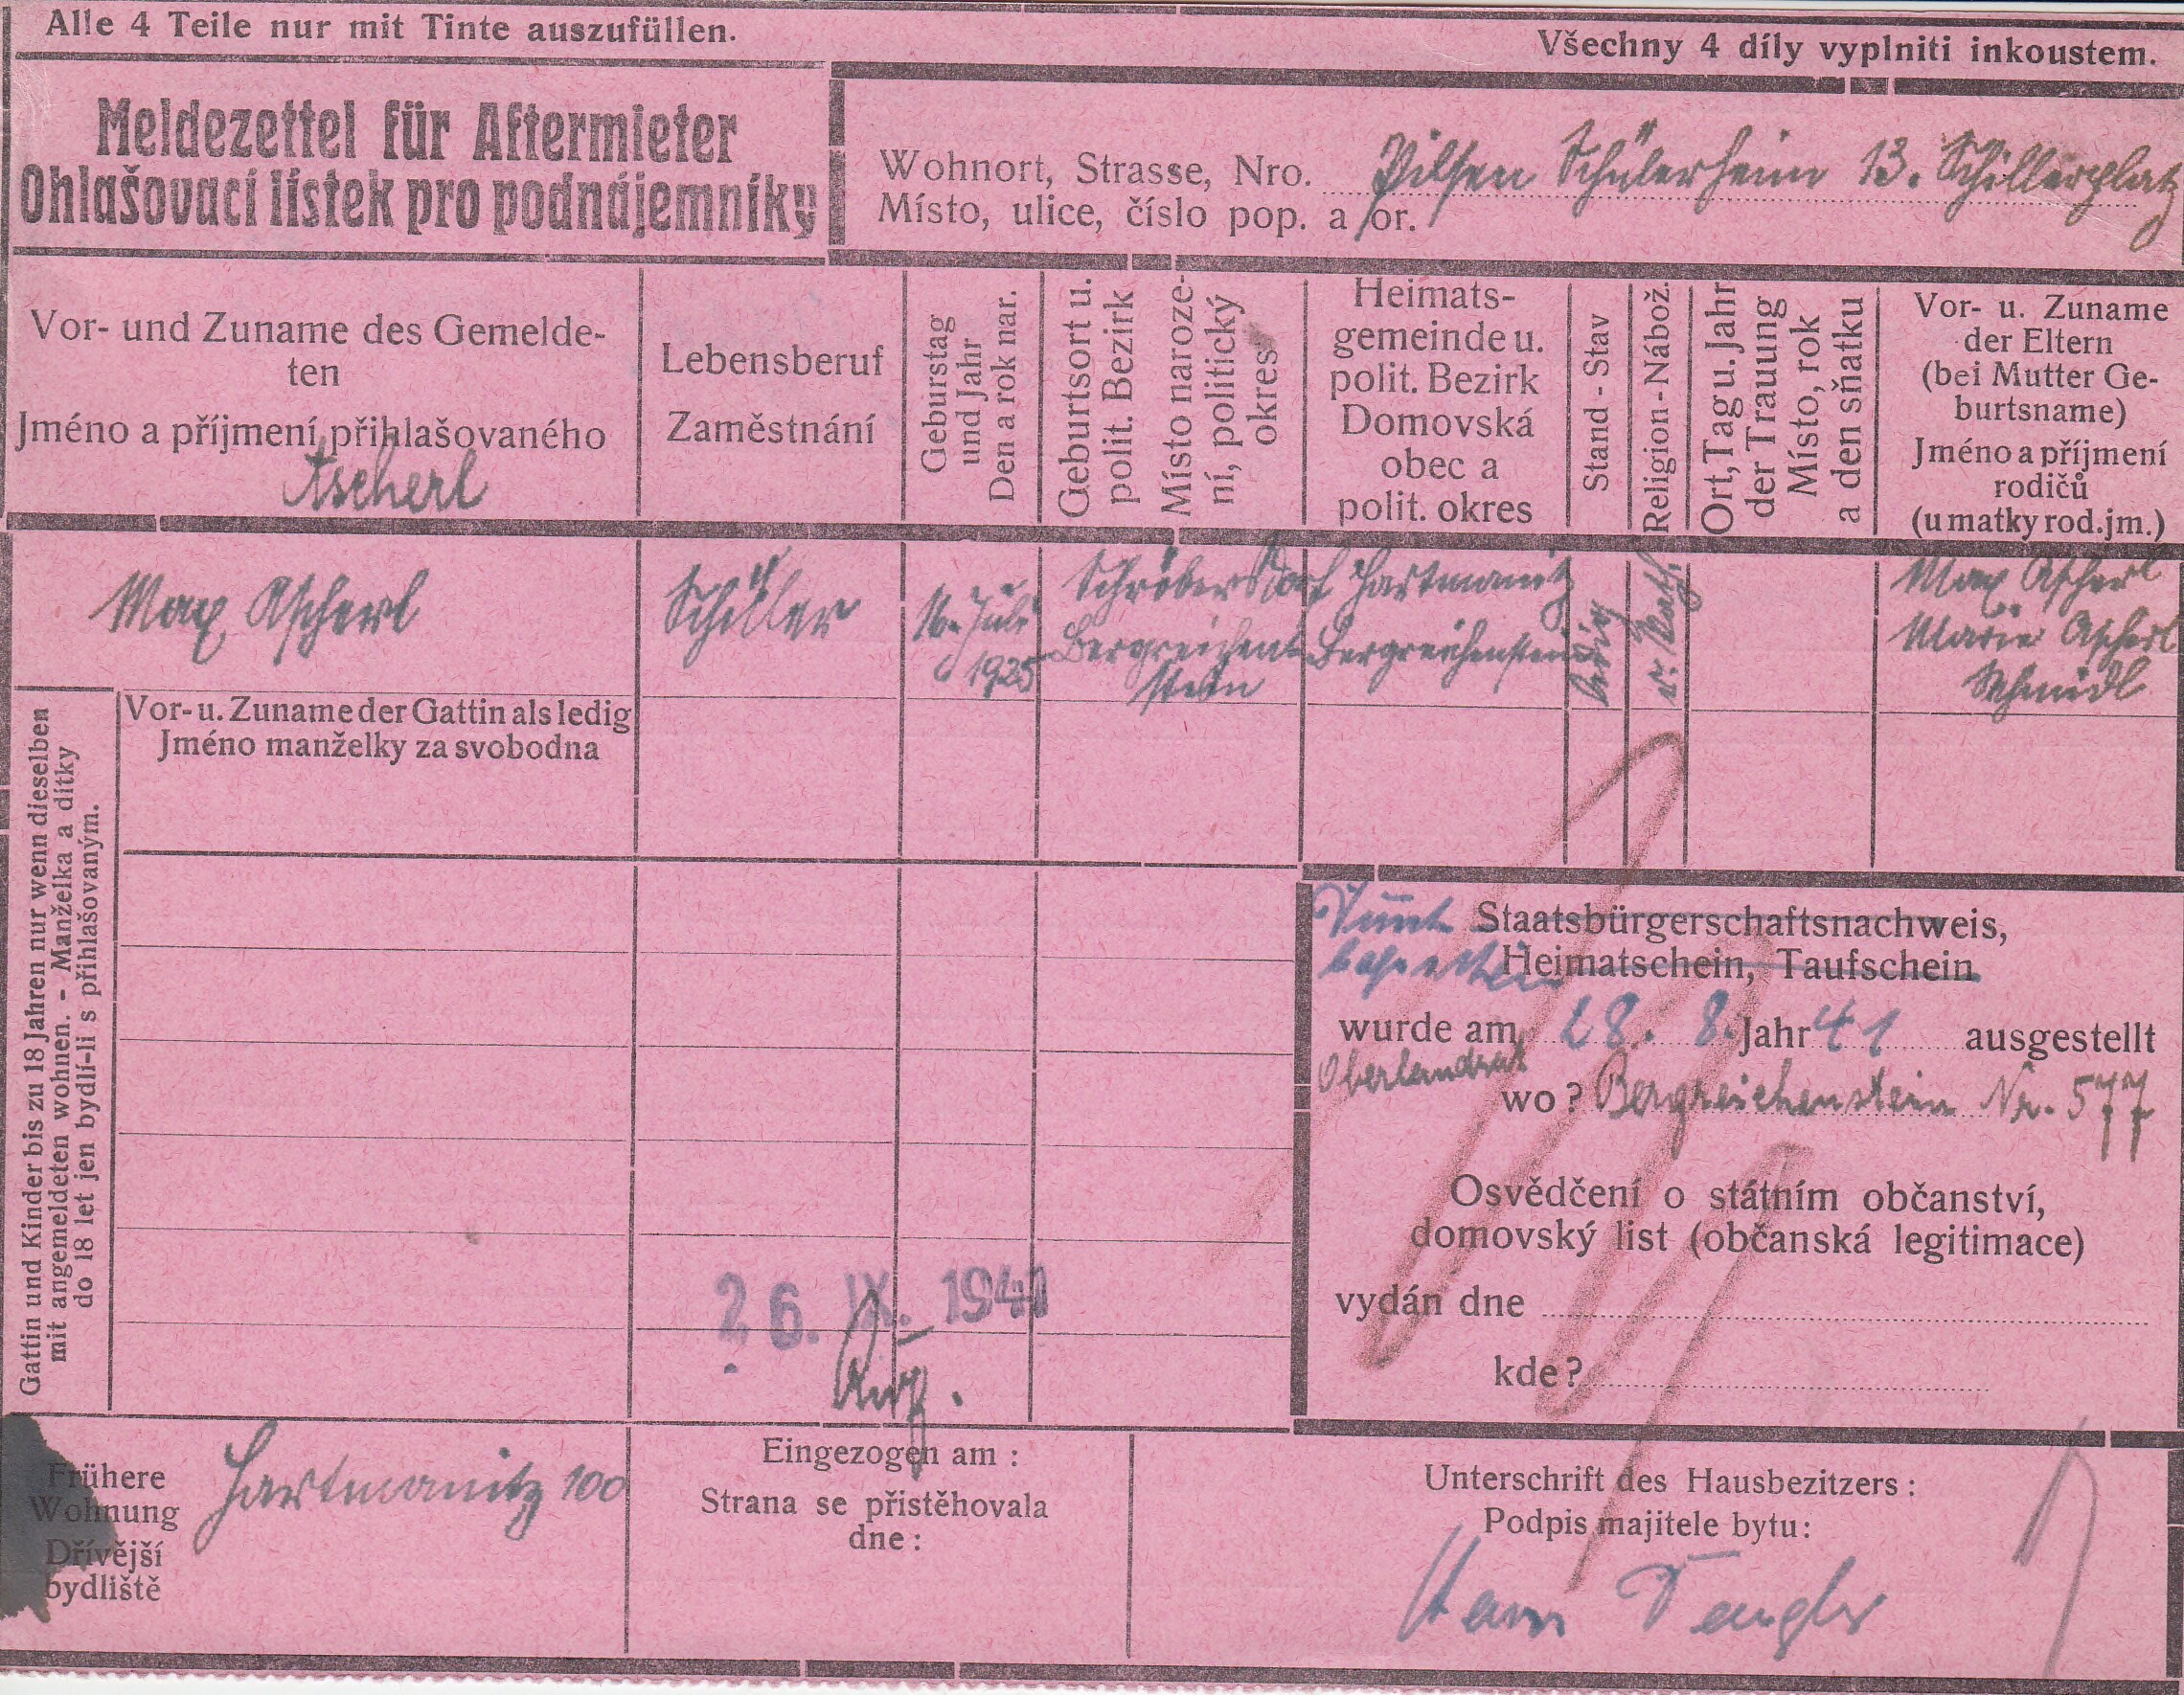 Alle 4 Teile nur mit Tinte auszufüllen.
Všechny 4 díly vyplniti inkoustem.
Meldezettel für Aftermieter
Ohlašovací lístek pro podnájemníky
Wohnort, Strasse, Nro. Pilsen Schülerheim 13. Schillerplatz
Místo, ulice, číslo pop. a or.
Vor- und Zuname des Gemelde-
ten
Jméno a příjmení přihlašovaného
Ascherl
Lebensberuf
Zaměstnání
Geburstag
und Jahr
Den a rok nar.
Geburtsort u.
polit. Bezirk
Místo naroze-
ní, politický
okres
Heimats-
gemeinde u.
polit. Bezirk
Domovská
obec a
polit. okres
Stand - Stav
Religion - Nábož.
Ort, Tag u. Jahr
der Trauung
Místo, rok
a den sňatku
Vor- u. Zuname
der Eltern
(bei Mutter Ge-
burtsname)
Jméno a příjmení
rodičů
(u matky rod. jm.)
Max Ascherl
Schüler
16. Juli
1925
Schröbersdorf
Bergreichen-
stein
Hartmanitz
Bergreichenstein
ledig
r. kath.
Max Ascherl
Marie Ascherl
Schmidl
Vor- u. Zuname der Gattin als ledig
Jméno manželky za svobodna
Gattin und Kinder bis zu 18 Jahren nur wenn dieselben
mit angemeldeten wohnen. - Manželka a dítky
do 18 let jen bydlí-li s přihlašovaným.
Staatsbürgerschaftsnachweis,
Heimatschein, Taufschein
wurde am 28. 8. Jahr 41 ausgestellt
Oberlandrat
wo? Bergreichenstein Nr. 577
Osvědčení o státním občanství,
domovský list (občanská legitimace)
vydán dne
kde?
26. IX. 1941
Frühere
Wohnung
Dřívější
bydliště
Hartmanitz 100
Eingezogen am :
Strana se přistěhovala
dne :
Unterschrift des Hausbezitzers :
Podpis majitele bytu :